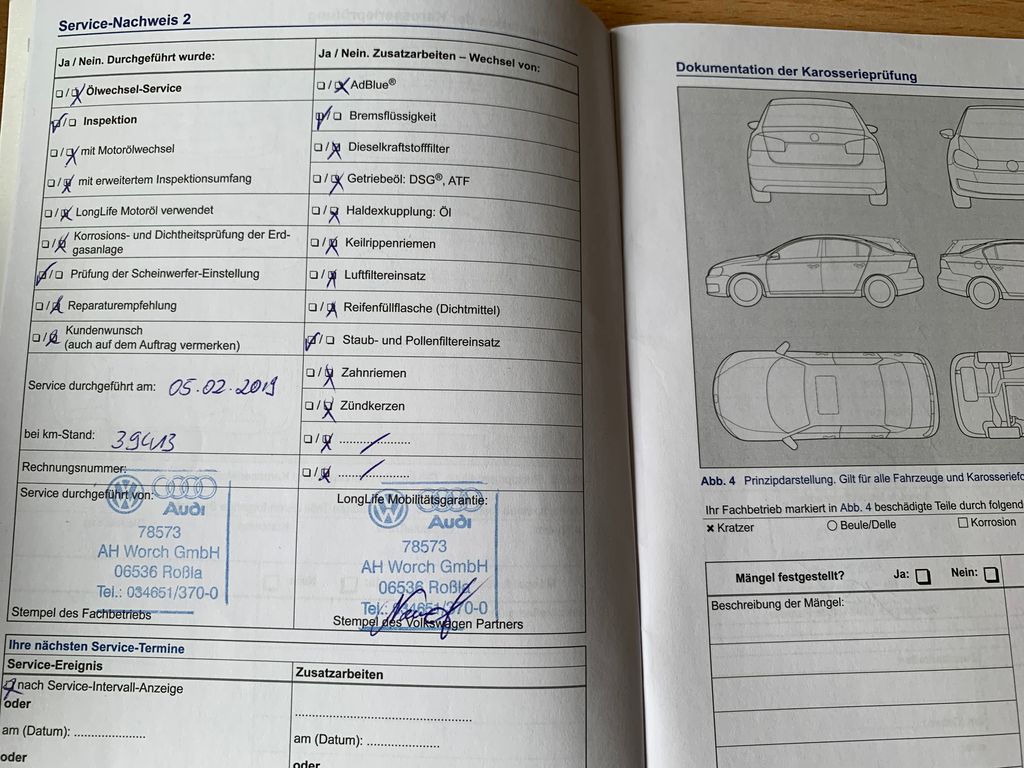 Service-Nachweis 2
Ja / Nein. Durchgeführt wurde:
Ölwechsel-Service
Inspektion
mit Motorölwechsel
mit erweitertem Inspektionsumfang
LongLife Motoröl verwendet
Korrosions- und Dichtheitsprüfung der Erd-
gasanlage
Prüfung der Scheinwerfer-Einstellung
Reparaturempfehlung
Kundenwunsch
(auch auf dem Auftrag vermerken)
Service durchgeführt am: 05.02.2019
bei km-Stand: 39413
Rechnungsnummer:
Service durchgeführt von:
Audi
78573
AH Worch GmbH
06536 Roßla
Tel.: 034651/370-0
Stempel des Fachbetriebs
Ja / Nein. Zusatzarbeiten – Wechsel von:
AdBlue®
Bremsflüssigkeit
Dieselkraftstofffilter
Getriebeöl: DSG®, ATF
Haldexkupplung: Öl
Keilrippenriemen
Luftfiltereinsatz
Reifenfüllflasche (Dichtmittel)
Staub- und Pollenfiltereinsatz
Zahnriemen
Zündkerzen
LongLife Mobilitätsgarantie:
Audi
78573
AH Worch GmbH
06536 Roßla
Tel.: 034651/370-0
Stempel des Volkswagen Partners
Ihre nächsten Service-Termine
Service-Ereignis
nach Service-Intervall-Anzeige
oder
am (Datum): ....................
oder
Zusatzarbeiten
..................................................
am (Datum): ....................
oder
Dokumentation der Karosserieprüfung
Abb. 4 Prinzipdarstellung. Gilt für alle Fahrzeuge und
Ihr Fachbetrieb markiert in Abb. 4 beschädigte Teile durch
Kratzer
Beule/Delle
Korrosion
Mängel festgestellt? Ja: Nein:
Beschreibung der Mängel: